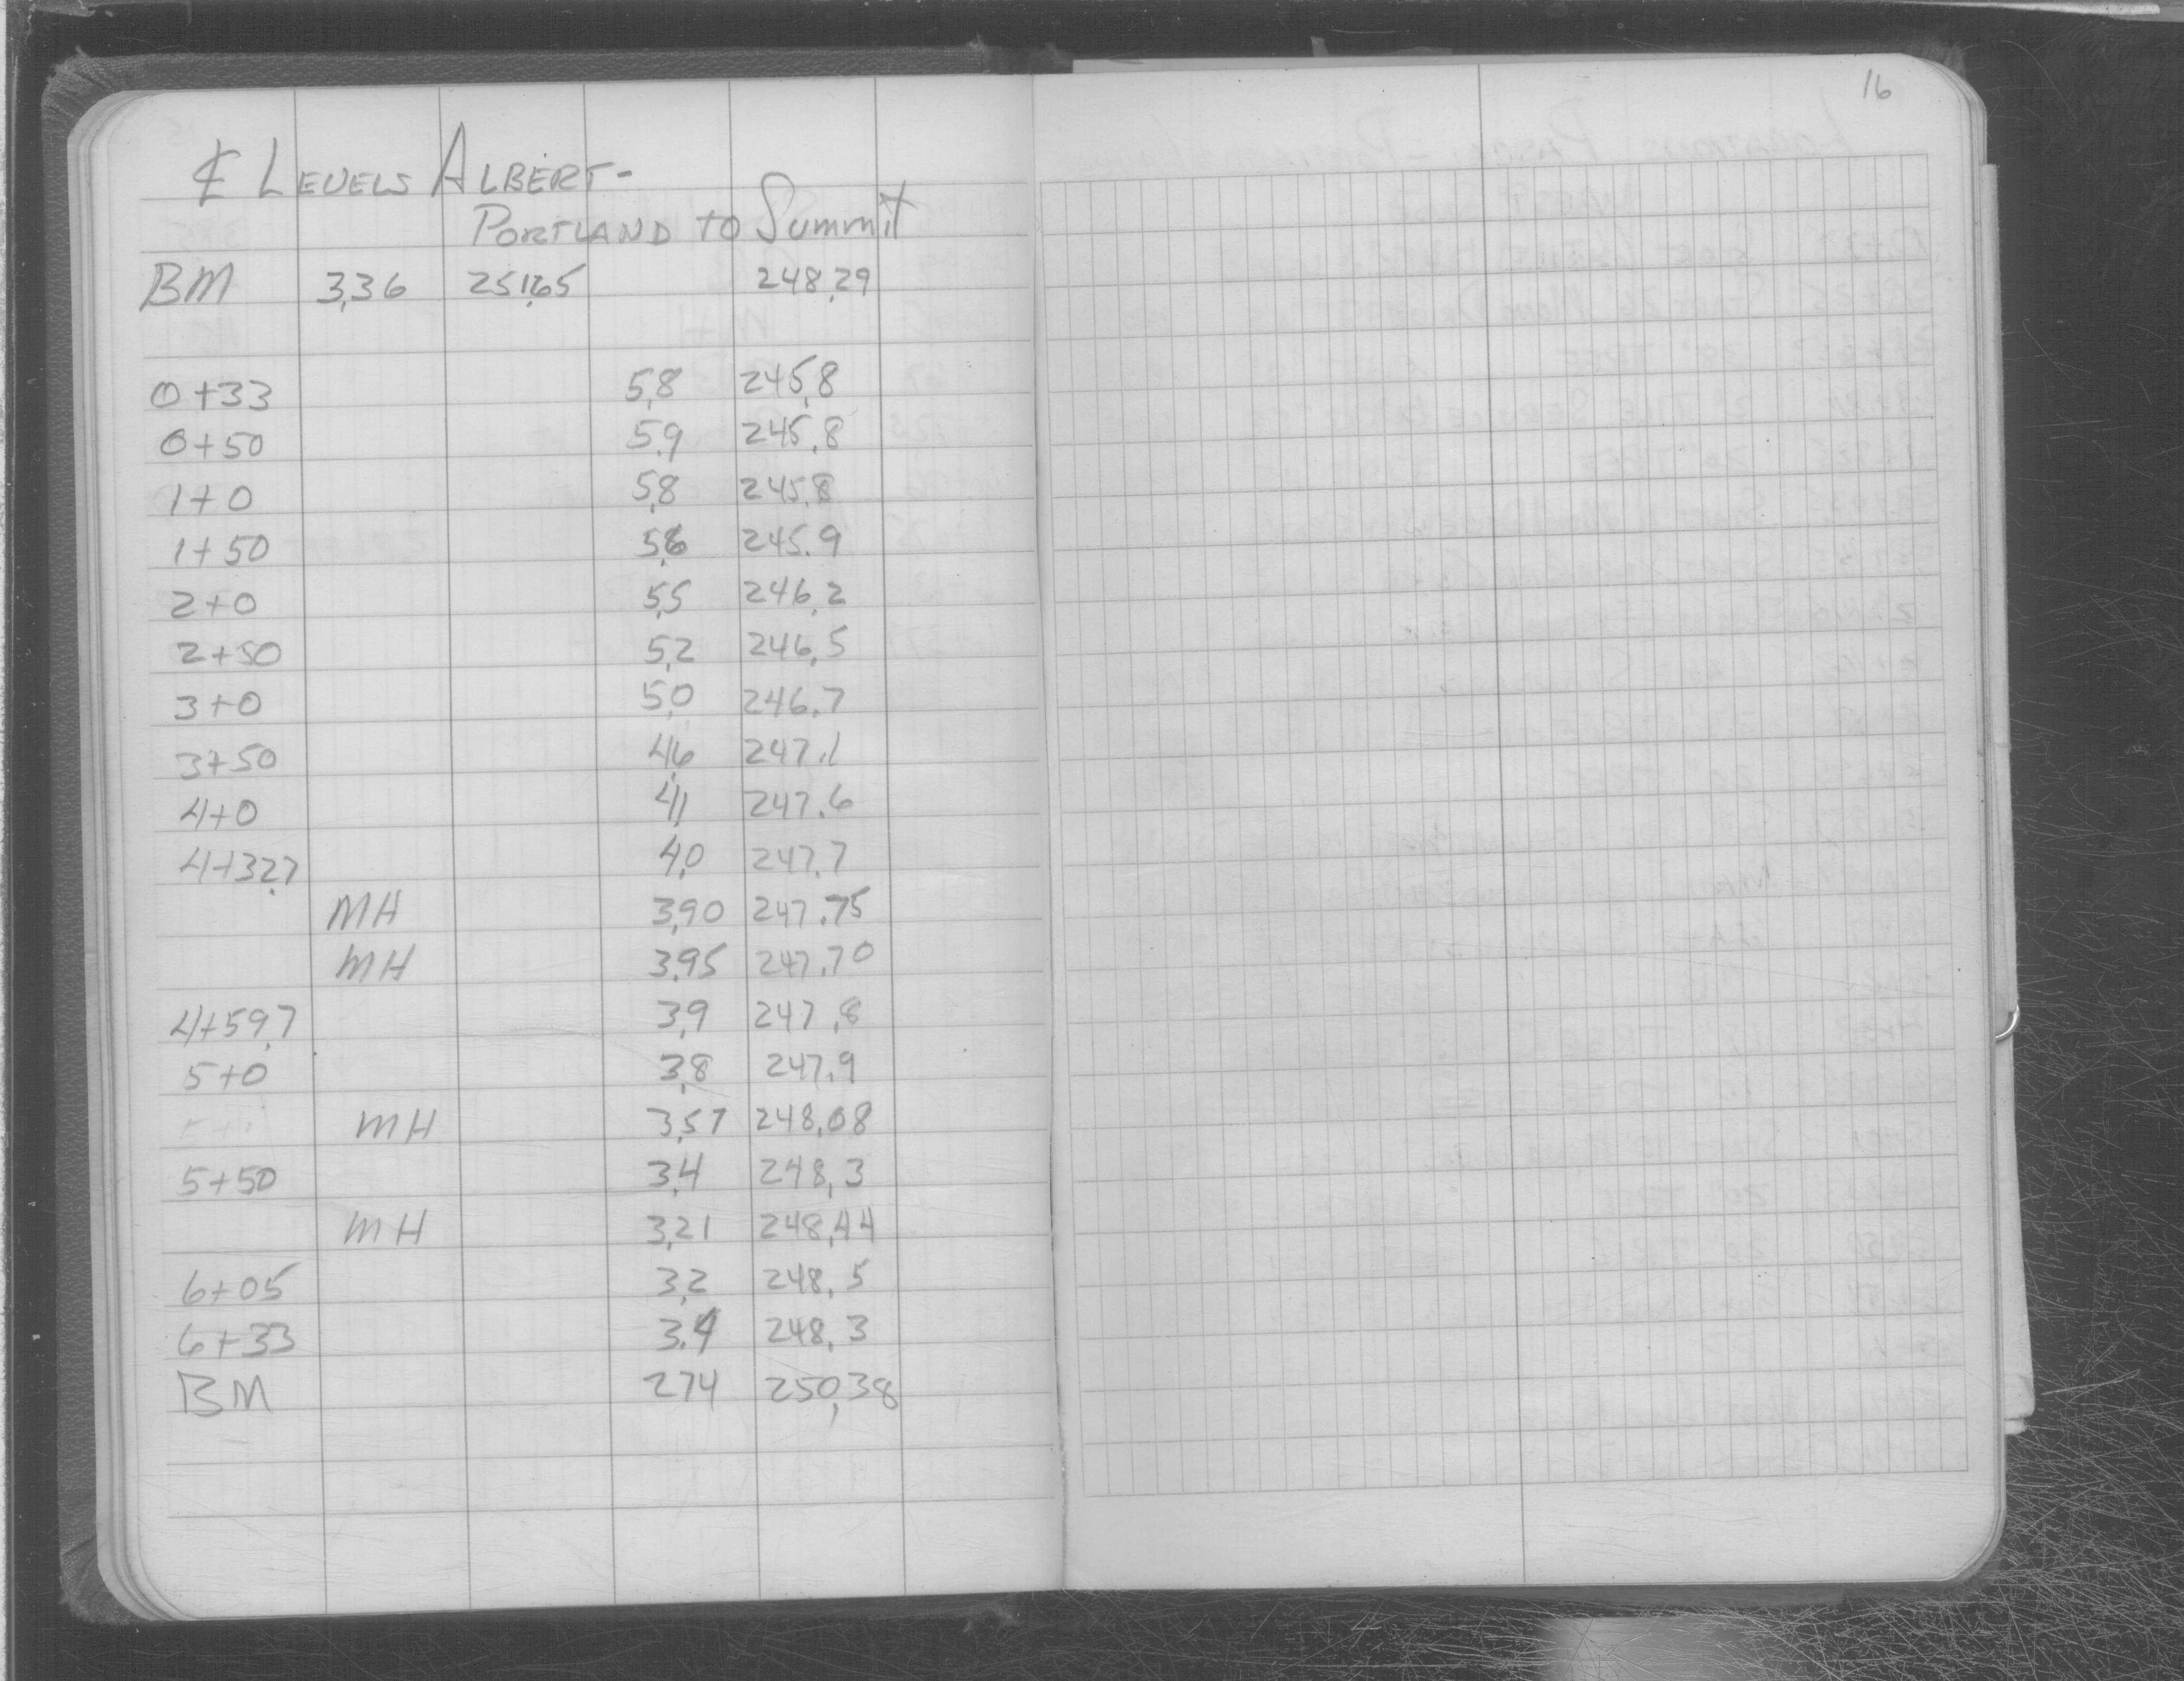 16
℄ LEVELS ALBERT-
PORTLAND TO Summit
BM 3.36 251.65 248.29
0+33 5.8 245.8
0+50 5.9 245.8
1+0 5.8 245.8
1+50 5.8 245.9
2+0 5.5 246.2
2+50 5.2 246.5
3+0 5.0 246.7
3+50 4.6 247.1
4+0 4.1 247.6
4+32.7 4.0 247.7
MH 3.90 247.75
MH 3.95 247.70
4+59.7 3.9 247.8
5+0 3.8 247.9
MH 3.57 248.08
5+50 3.4 248.3
MH 3.21 248.44
6+05 3.2 248.5
6+33 3.4 248.3
BM 274 250.38